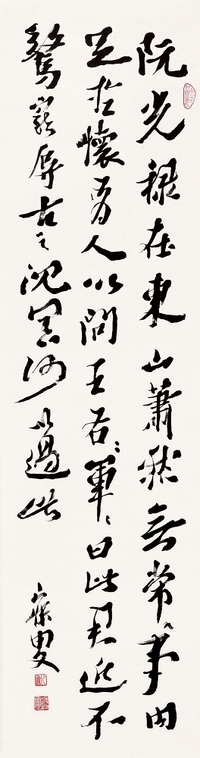 阮光祿在東山蕭然無常事内
足於懷有人以問王右〻軍〻曰此君近不
驚寵辱古之沈冥何以過此
寐叟